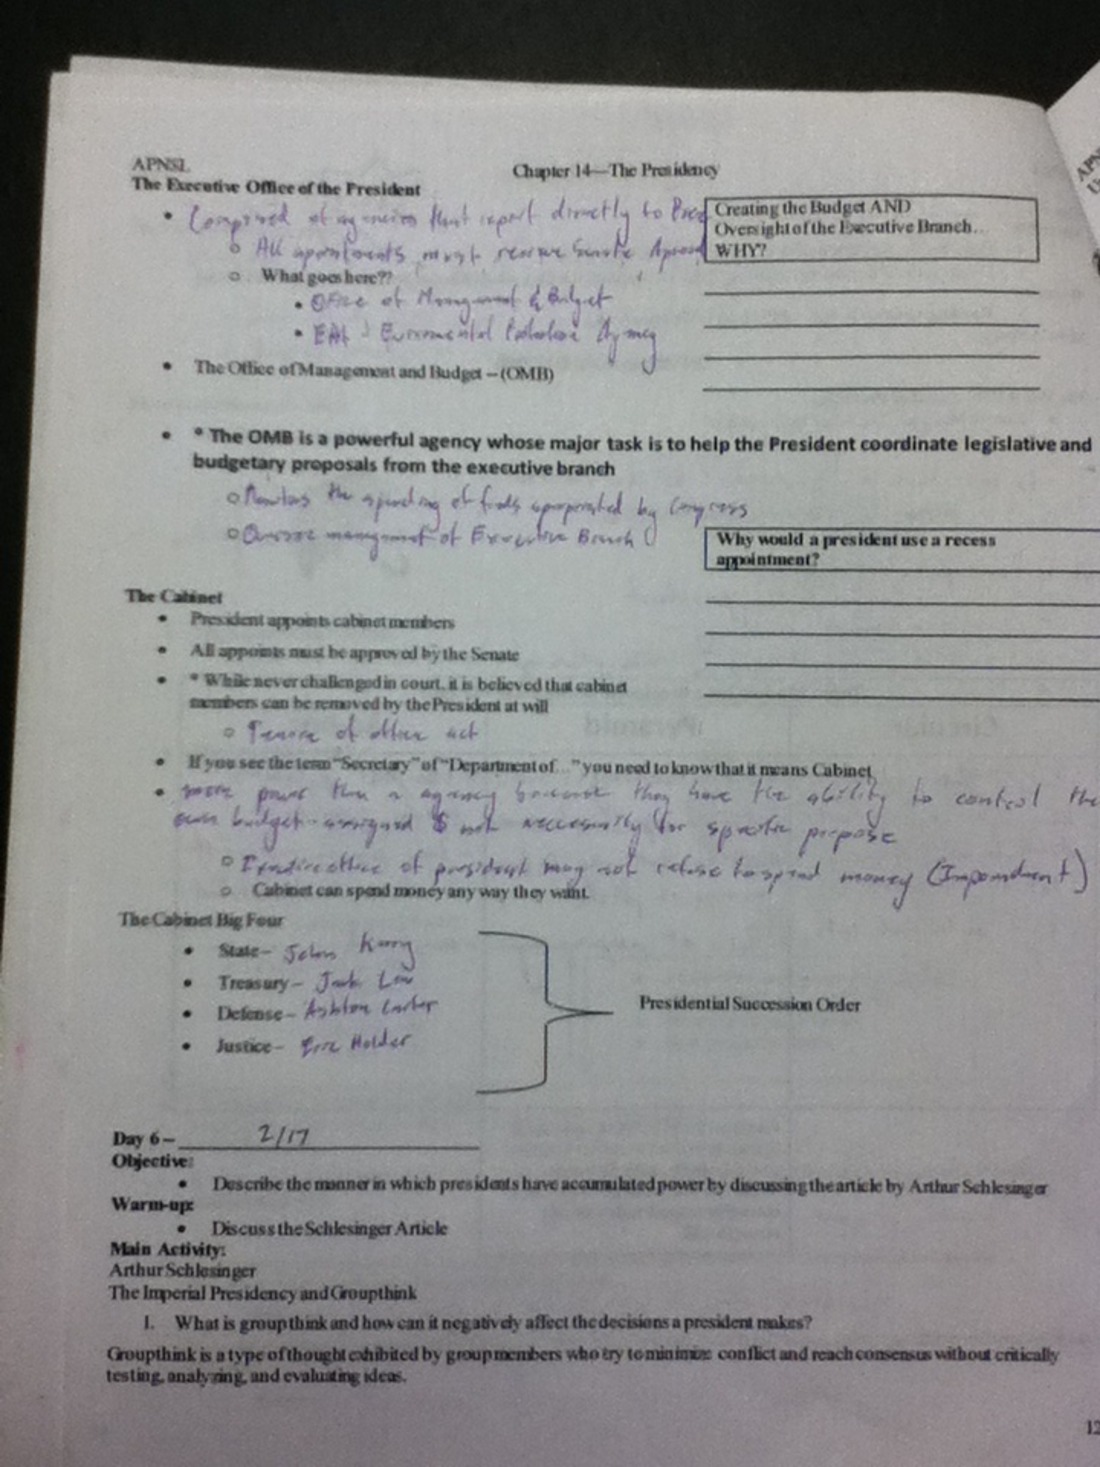 APNSL
Chapter 14—The Presidency
The Executive Office of the President
• Comprised of agencies that report directly to Pres
o All appointments must receive Senate Approval
o What goes here??
• Office of Management & Budget
• EPA - Environmental Protection Agency
Creating the Budget AND
Oversight of the Executive Branch..
WHY?
• The Office of Management and Budget – (OMB)
• * The OMB is a powerful agency whose major task is to help the President coordinate legislative and
budgetary proposals from the executive branch
o Monitors the spending of funds appropriated by Congress
o Oversee management of Executive Branch
Why would a president use a recess
appointment?
The Cabinet
• President appoints cabinet members
• All appoints must be approved by the Senate
• * While never challenged in court, it is believed that cabinet
members can be removed by the President at will
o Tenure of office act
• If you see the term "Secretary" of "Department of…" you need to know that it means Cabinet
• more power than a agency because they have the ability to control the
own budget - assigned $ not necessarily for specific purpose
o Executive office of president may not refuse to spend money (Impoundment)
o Cabinet can spend money any way they want.
The Cabinet Big Four
• State – John Kerry
• Treasury – Jack Lew
• Defense – Ashton Carter
• Justice – Eric Holder
Presidential Succession Order
Day 6 – 2/17
Objective:
• Describe the manner in which presidents have accumulated power by discussing the article by Arthur Schlesinger
Warm-up:
• Discuss the Schlesinger Article
Main Activity:
Arthur Schlesinger
The Imperial Presidency and Groupthink
1. What is group think and how can it negatively affect the decisions a president makes?
Groupthink is a type of thought exhibited by group members who try to minimize conflict and reach consensus without critically
testing, analyzing, and evaluating ideas.
12